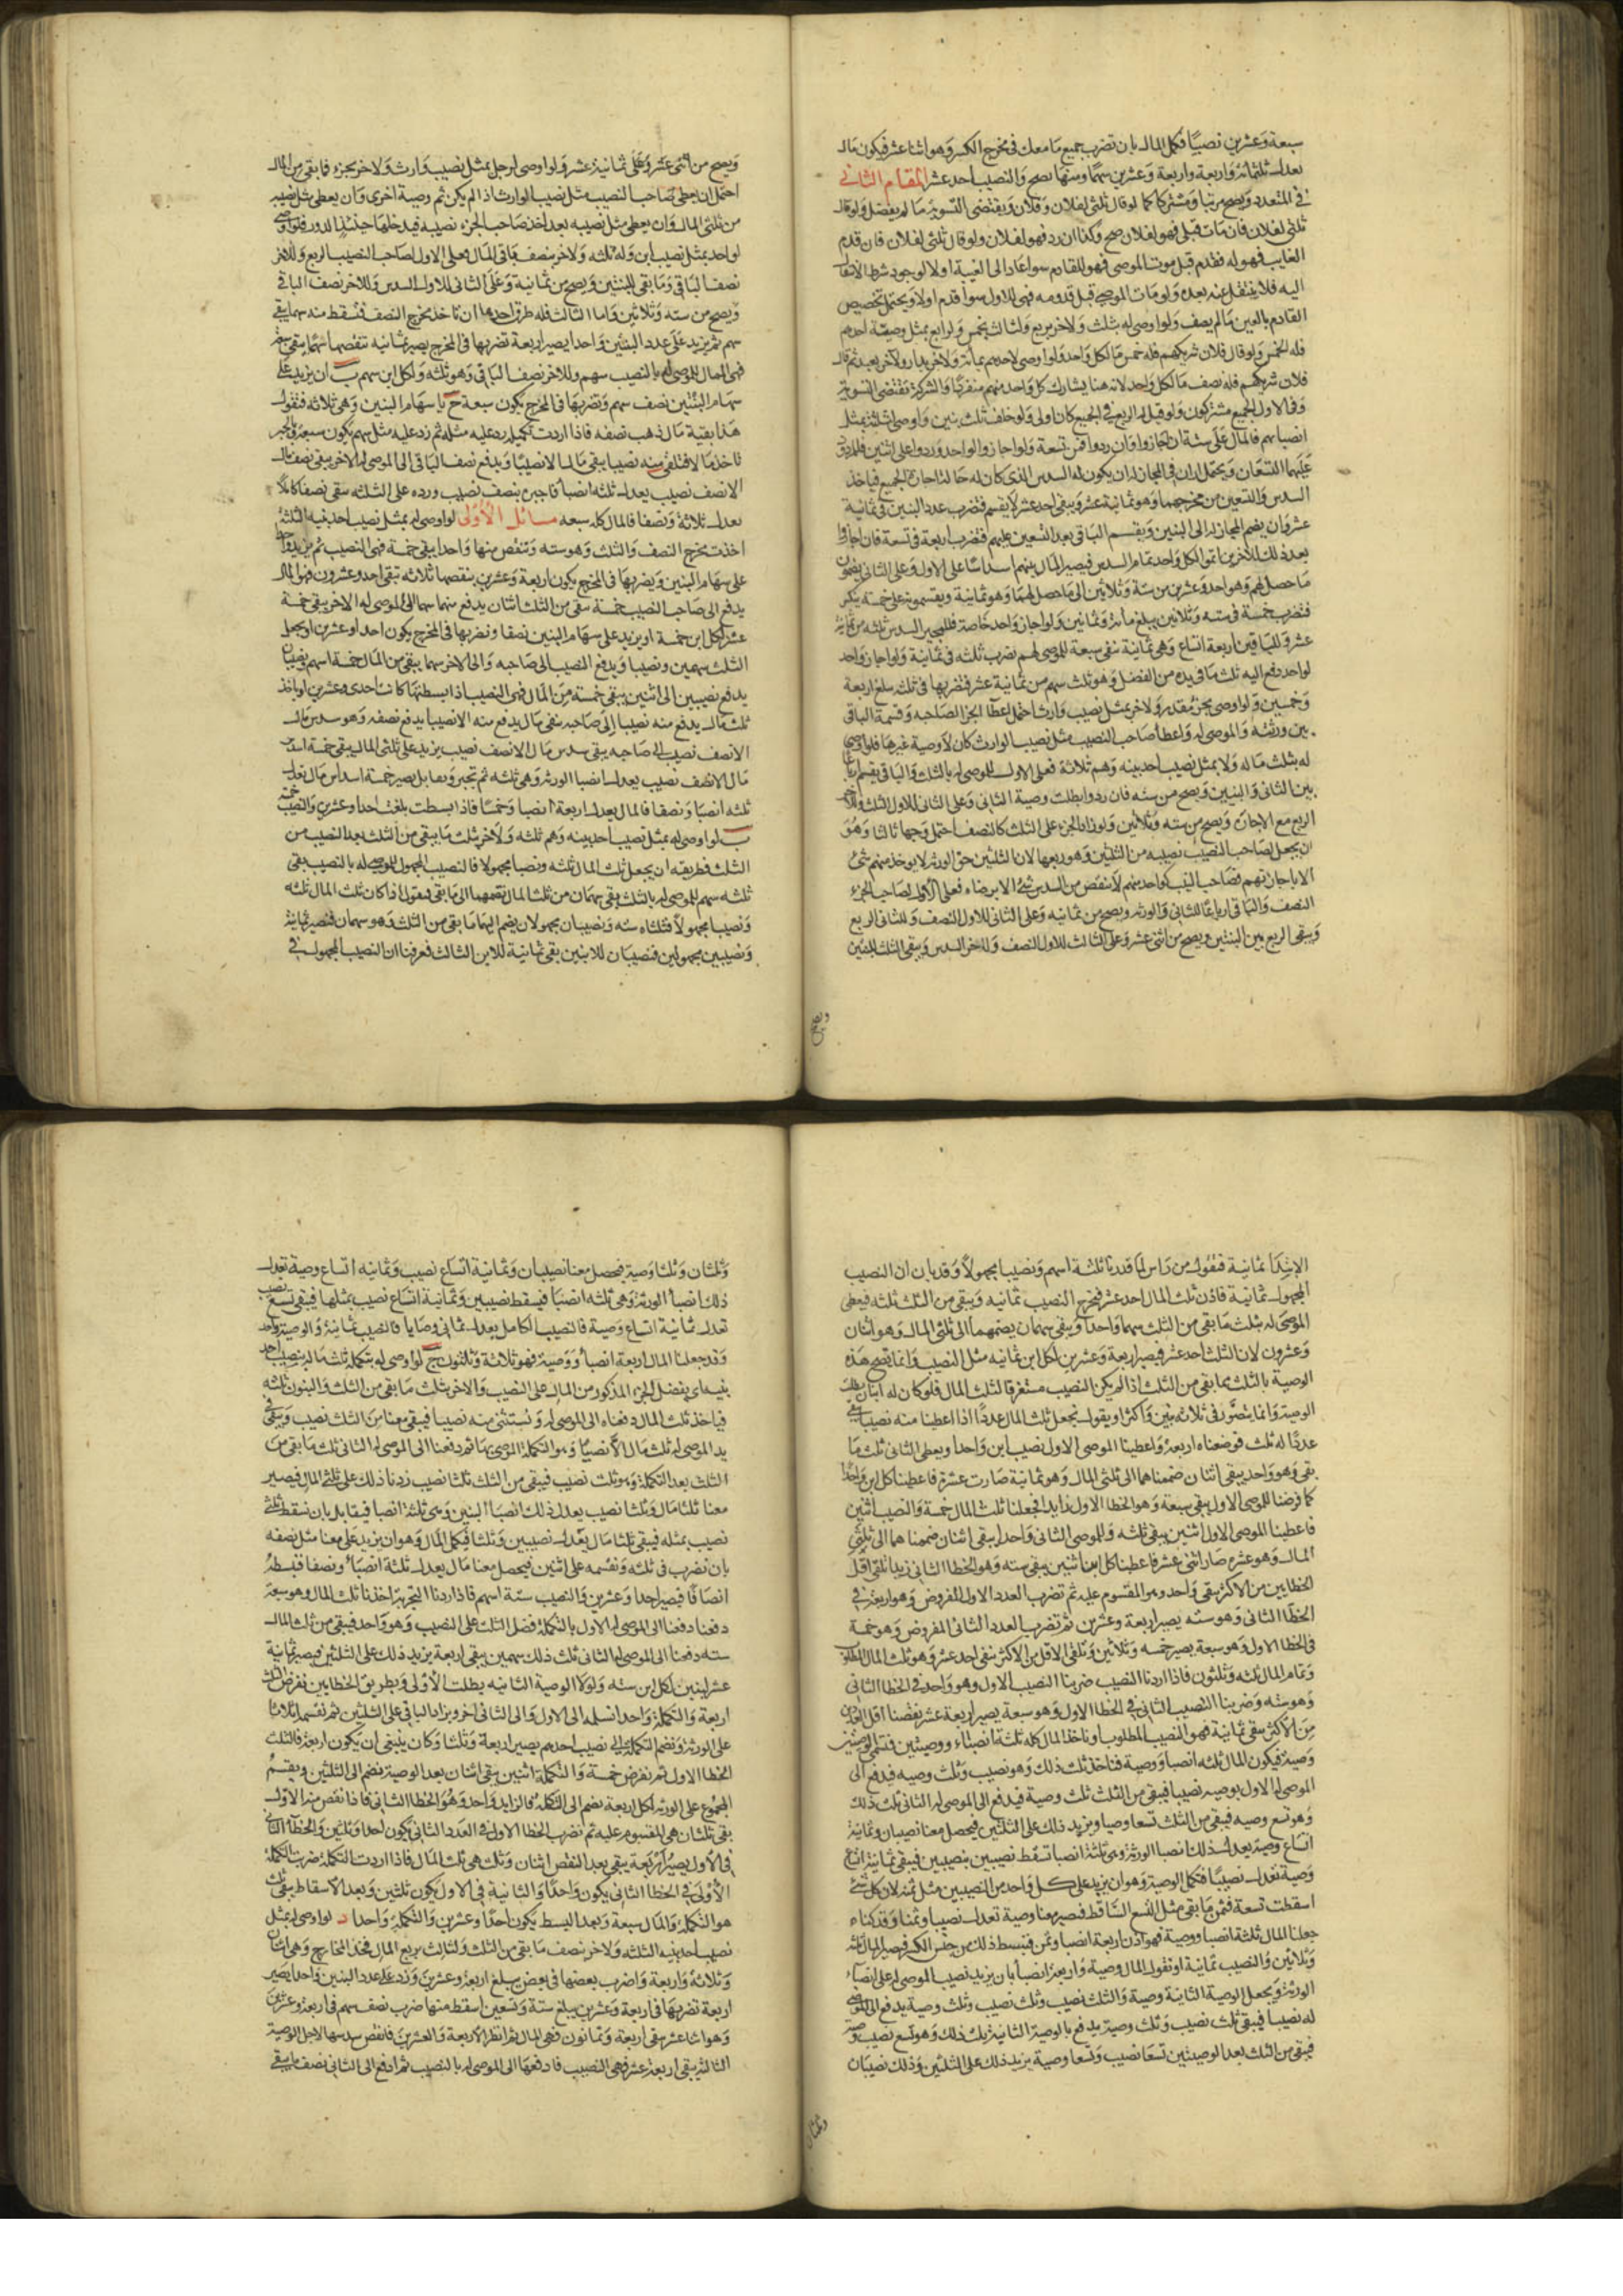 سبعة وعشرين نصيبا فكمل المال بان تضرب جميع ما معك في مخرج الكسر وهو اثنا عشر فيكون مال
يعدل ثلثمائة واربعة وعشرين سهما ومنها تصح والنصيب احد عشر المقام الثاني
في المتعدد ويصح مرتبا ومشتركا كما لو قال ثلثي لفلان وفلان ويقتضي التسوية ما لم يفضل ولو قال
ثلثي لفلان فان مات قبلي فهو لفلان صح وكذا ان رد فهو لفلان ولو قال ثلثي لفلان فان قدم
الغايب فهو له فقدم قبل موت الموصي فهو للقادم سوا عاد الى الغيبة اولا لوجود شرط الانتقال
اليه فلا ينتقل عنه بعده ولو مات الموصي قبل قدومه فهي للاول سوا قدم اولا ويحتمل تخصيص
القادم بالعين ما لم يصف ولو اوصى له بثلث ولاخر بربع ولثالث بخمس ولرابع بمثل وصية احدهم
فله الخمس ولو قال فلان شريكهم فله خمس ما لكل واحد ولو اوصى لاحدهم بمائة ولاخر بدار ولاخر بعبد ثم قال
فلان شريكهم فله نصف ما لكل واحد لانه هنا يشارك كل واحد منهم منفردا والشركة تقتضي التسوية
وفي الاول الجميع مشتركون ولو قيل له الربع في الجميع كان اولى ولو خلف ثلث بنين واوصى لثلثة بمثل
انصبائهم فالمال على ستة ان اجازوا وان ردوا فمن تسعة ولو اجازوا لواحد وردوا على اثنين فللمردود
عليهما التسعان ويحتمل ان في المجاز له ان يكون له السدس الذي كان له حال اجازة الجميع فياخذ
السدس والتسعين من مخرجهما وهو ثمانية عشر ويبقى احد عشر لا ينقسم فتضرب عدد البنين في ثمانية
عشر وان يضم المجاز له الى البنين ويقسم الباقي بعد التسعين عليهم فتضرب اربعة في تسعة فان اجازوا
بعد ذلك للاخرين اتموا لكل واحد تمام السدس فيصير المال بينهم اسداسا على الاول وعلى الثاني يضمون
ما حصل لهم وهو احد وعشرين من ستة وثلاثين الى ما حصل لهما وهو ثمانية ويقسمونه على خمسة ينكسر
فتضرب خمسة في ستة وثلاثين يبلغ مائة وثمانين ولو اجاز واحد خاصة فللمجيز السدس ثلثة من ثمانية
عشر وللباقين اربعة اتساع وهي ثمانية تبقى سبعة للموصى لهم تضرب ثلثة في ثمانية ولو اجاز واحد
لواحد دفع اليه ثلث ما في يده من الفضل وهو ثلث سهم من ثمانية عشر فنضربها في ثلثة يبلغ اربعة
وخمسين ولو اوصى بجزء مقدر ولاخر بمثل نصيب وارث احتمل اعطا الجزء لصاحبه وقسمة الباقي
بين ورثته والموصى له واعطا صاحب النصيب مثل نصيب الوارث كان لا وصية غيرها فلو اوصى
له بثلث ماله ولا بمثل نصيب احد بنيه وهم ثلاثة فعلى الاول للموصى له بالثلث والباقي يقسم ارباعا
بين الثاني والبنين ويصح من سته فان ردوا بطلت وصية الثاني وعلى الثاني للاول الثلث وللاخر
الربع مع الاجازة ويصح من ستة وثلاثين ولو زاد الجزء على الثلث كالنصف احتمل وجها ثالثا وهو
ان يجعل لصاحب النصيب نصيبه من الثلثين وهو ربعها لان الثلثين حق الورثة لا يوخذ منهم شئ
الا باجازتهم وصاحب النصيب كواحد منهم لا ينقص من السدس شئ الا برضاه فعلى الاول لصاحب الجزء
النصف والباقي ارباعا للثاني والورثة ويصح من ثمانية وعلى الثاني للاول النصف وللثاني الربع
ويبقى الربع بين البنتين ويصح من اثني عشر وعلى الثالث للاول النصف وللاخر السدس ويبقى الثلث للبنين
ويصح
ويصح من اثني عشر وعلى ثمانية عشر ولو اوصى لرجل بمثل نصيب وارث ولاخر بجزء فما بقي من المال
احتمل ان يعطى صاحب النصيب مثل نصيب الوارث اذا لم يكن ثم وصية اخرى وان يعطى مثل نصيبه
من ثلثي المال وان يعطى مثل نصيبه بعد اخذ صاحب الجزء نصيبه فيدخلها حينئذ الدور فلو اوصى
لواحد بمثل نصيب ابن وله ثلثه ولاخر بنصف باقي المال فعلى الاول لصاحب النصيب الربع وللاخر
نصف الباقي وما بقي للبنين ويصح من ثمانية وعلى الثاني للاول السدس وللاخر نصف الباقي
ويصح من سته وثلاثين واما الثالث فله طرق احدها ان تاخذ مخرج النصف فتسقط منه سهما يبقى
سهم ثم يزيد على عدد البنين واحدا يصير اربعة تضربها في المخرج يصير ثمانية تنقصها سهما يبقى سبعة
فهي المال للموصى له بالنصيب سهم وللاخر نصف الباقي وهو ثلثه ولكل ابن سهم ب ان يزيد على
سهام البنين نصف سهم وتضربها في المخرج يكون سبعة ج يا سهام البنين وهي ثلاثه فنقول
هذا بقية مال ذهب نصفه فاذا اردت تكميله زد عليه مثله ثم زد عليه مثل سهم يكون سبعة وبالجبر
تاخذ مالا فتلقى منه نصيبا يبقى مالا الا نصيبا ويدفع نصف الباقي الى الموصى له الاخر يبقى نصف مال
الا نصف نصيب يعدل ثلثه انصبا فاجبره بنصف نصيب ورده على الثلثه يبقى نصفا كاملا
يعدل ثلاثة ونصفا فالمال كله سبعه مسائل الاولى لو اوصى له بمثل نصيب احد بنيه الثلثة
اخذت مخرج النصف والثلث وهو سته وتنقص منها واحدا يبقى خمسة فهي النصيب ثم يزيد واحدا
على سهام البنين ويضربها في المخرج يكون اربعة وعشرين ينقصها ثلاثه تبقى احد وعشرون فهو المال
يدفع الى صاحب النصيب خمسة يبقى من الثلث اثنان يدفع منهما سهما الى الموصى له الاخر يبقى خمسة
عشر لكل ابن خمسة او يزيد على سهام البنين نصفا ونضربها في المخرج يكون احدا وعشرين او يجعل
الثلث سهمين ونصيبا ويدفع النصيب الى صاحبه والى الاخر سهما يبقى من المال خمسة اسهم ونصيبان
يدفع نصيبين الى اثنين يبقى خمسة من المال فهي النصيب اذا بسطتها كانت احدى وعشرين او ياخذ
ثلث مال يدفع منه نصيبا الى صاحبه يبقى مال يدفع منه الا نصيبا يدفع نصفه وهو سدس مال
الا نصف نصيب الى صاحبه يبقى سدس مال الا نصف نصيب يزيد على ثلثي المال يبقى خمسة اسداس
مال الا نصف نصيب يعدل انصبا الورثة وهي ثلثه ثم تجبر وتقابل يصير خمسة اسداس مال تعدل
ثلثه انصبا ونصفا فالمال يعدل اربعة انصبا وخمسا فاذا بسطت بلغت احدا وعشرين والنصيب خمسة
ب لو اوصى له بمثل نصيب احد بنيه وهم ثلثه ولاخر ثلث ما يبقى من الثلث بعد النصيب من
الثلث فطريقه ان يجعل ثلث المال ثلثه ونصيبا مجهولا فالنصيب المجهول للموصى له بالنصيب يبقى
ثلثه سهم للموصى له بالثلث يبقى سهمان من ثلث المال تضمهما الى ما بقي فيقول اذا كان ثلث المال ثلثه
ونصيبا مجهولا فثلثاه سته ونصيبان مجهولان يضم اليهما ما بقي من الثلث وهو سهمان فتصير ثمانية
ونصيبين مجهولين فنصيبان للابنين بقي ثمانية للابن الثالث فعرفنا ان النصيب المجهول في
الابتدا ثمانية فنقول من راس لما قدرنا ثلثة اسهم ونصيبا مجهولا وقد بان ان النصيب
المجهول ثمانية فاذن ثلث المال احد عشر فيخرج النصيب ثمانيه ويبقى من الثلث ثلثه فيعطى
الموصى له بثلث ما بقي من الثلث سهما واحدا ويبقى سهمان يضمهما الى ثلثي المال وهو اثنان
وعشرون لان الثلث احد عشر فيصير اربعة وعشرين لكل ابن ثمانيه مثل النصيب وانما يصح هذه
الوصية بالثلث مما بقي من الثلث اذا لم يكن النصيب مستغرقا لثلث المال فلو كان له ابنان بطلت
الوصية وانما يتصور في ثلاثة بنين واكثر او يقول نجعل ثلث المال عددا اذا اعطينا منه نصيبا يبقى
عددا له ثلث فوضعناه اربعة واعطينا الموصى الاول نصيب ابن واحدا ويعطى الثاني ثلث ما
بقي وهو واحد يبقى اثنان ضممناهما الى ثلثي المال وهو ثمانية صارت عشرة فاعطينا كل ابن واحدا
كما فرضنا للموصى الاول يبقى سبعة وهو الخطا الاول زايد فجعلنا ثلث المال خمسة والنصيب اثنين
فاعطينا الموصى الاول اثنين يبقى ثلثه وللموصى الثاني واحدا يبقى اثنان ضممنا هما الى ثلثي
المال وهو عشرة صار اثنى عشر فاعطينا كل ابن اثنين يبقى سته وهو الخطا الثاني زيدا نلقى اقل
الخطايين من الاكثر يبقى واحد وهو المقسوم عليه ثم تضرب العدد الاول المفروض وهو اربعة في
الخطا الثاني وهو سته يصير اربعة وعشرين ثم تضرب العدد الثاني المفروض وهو خمسة
في الخطا الاول وهو سبعة يصير خمسه وثلاثين وتلقى الاقل من الاكثر تبقى احد عشر وهو ثلث المال المطلوب
وتمام المال ثلثه وثلثون فاذا اردنا النصيب ضربنا النصيب الاول وهو واحد في الخطا الثاني
وهو سته وضربنا النصيب الثاني في الخطا الاول وهو سبعة يصير اربعة عشر نقصنا اقل العددين
من الاكثر يبقى ثمانية فهو النصيب المطلوب او ناخذ المال كله ثلثة انصباء ووصيتين فتسمى الوصيتين
وصية فيكون المال ثلثه انصبا ووصية فناخذ ثلث ذلك وهو نصيب وثلث وصيه فيدفع الى
الموصى له الاول بوصيه نصيبا فيبقى من الثلث ثلث وصية فيدفع الى الموصى له الثاني ثلث ذلك
وهو تسع وصيه فيبقى من الثلث تسعا وصيا ويزيد ذلك على الثلثين فيحصل معنا نصيبان وثمانية
اتساع وصية يعدل ذلك انصبا الورثة وهي ثلثة انصبا تسقط نصيبين بنصيبين فيبقى ثمانية اتساع
وصية تعدل نصيبا فتكمل الوصية وهو ان يزيد على كل واحد من النصيبين مثل ثمنه لان كل شئ
اسقطت تسعة فثمن ما بقي مثل التسع الساقط فيصير معنا وصية تعدل نصيبا وثمنا وقد كناء
جعلنا المال ثلثة انصبا ووصية فهو اذن اربعة انصبا وثمن فنبسط ذلك من جنس الكسر فيصير المال ثلثة
وثلاثين والنصيب ثمانية او نقول المال وصية واربعة انصبا بان يزيد نصيب الموصى له على انصباء
الورثة ويجعل الوصية الثانية وصية والثلث نصيب وثلث نصيب وثلث وصية يدفع الى الموصى
له نصيبا فيبقى ثلث نصيب وثلث وصية يدفع بالوصية الثانية ثلث ذلك وهو تسع نصيب وتسع وصية
فيبقى من الثلث بعد الوصيتين تسعا نصيب وتسعا وصية يزيد ذلك على الثلثين وذلك نصيبان
وثلثان
وثلثان وثلثا وصية فيحصل معنا نصيبان وثمانية اتساع نصيب وثمانيه اتساع وصية تعدل
ذلك انصبا الورثة وهي ثلثه انصبا فيسقط نصيبين وثمانية اتساع نصيب بمثلها فيبقى تسع نصيب
تعدل ثمانية اتساع وصية فالنصيب الكامل يعدل ثماني وصايا فالنصيب ثمانية والوصية واحد
وقد جعلنا المال اربعة انصبا ووصية فهو ثلاثة وثلثون ج لو اوصى له بتكملة ثلث ماله بنصيب احد
بنيه اى بفضل الجزء المذكور من المال على النصيب والاخر بثلث ما بقي من الثلث والبنون ثلثه
فياخذ ثلث المال دفعناه الى الموصى له ونستثنى منه نصيبا فيبقى معنا من الثلث نصيب ويبقى في
يد الموصى له ثلث مال الا نصيبا وهو التكملة الموصى بها ثم دفعنا الى الموصى له الثاني ثلث ما بقي من
الثلث بعد التكملة وهو ثلث نصيب فيبقى من الثلث ثلثا نصيب زدنا ذلك على ثلثي المال فيصير
معنا ثلثا مال وثلثا نصيب يعدل ذلك انصبا البنين وهي ثلثة انصبا فيقابل بان نسقط ثلثي
نصيب بمثله فيبقى ثلثا مال يعدل نصيبين وثلثا فيكمل المال وهو ان يزيد على معنا مثل نصفه
بان نضرب في ثلثه ونقسمه على اثنين فيحصل معنا مال يعدل ثلثة انصبا ونصفا فنبسطه
انصافا فيصير احدا وعشرين والنصيب ستة اسهم فاذا اردنا التجربة اخذنا ثلث المال وهو سبعة
دفعنا دفعنا الى الموصى له الاول بالتكملة فضل الثلث على النصيب وهو واحد فيبقى من ثلث المال
سته دفعنا الى الموصى له الثاني ثلث ذلك سهمين يبقى اربعة يزيد ذلك على الثلثين فيصير ثمانية
عشر لبنين لكل ابن سته ولولا الوصية الثانيه بطلت الاولى وبطريق الخطايين نفرض الثلث
اربعة والتكملة واحدا نسلمه الى الاول والى الثاني اخر ويزاد الباقي على الثلثين ثم نقسمه اثلاثا
على الورثة ونضم التكملة الى نصيب احدهم يصير اربعة وثلثا وكان ينبغي ان يكون اربعة فالثلث
الخطا الاول ثم نفرض خمسة والتكملة اثنين يبقى اثنان بعد الوصية نضم الى الثلثين ويقسم
المجموع على الورثه لكل اربعة نضم الى التكملة فالزايد واحد وهو الخطا الثاني فاذا نقص منه الاول
بقي ثلثان هي المقسوم عليه ثم نضرب الخطا الاول في العدد الثاني يكون احدا وثلثين والخطا الثاني
في الاول يصير اربعة يبقى بعد النقص اثنان وثلث هي ثلث المال فاذا اردت التكملة ضربت التكملة
الاولى في الخطا الثاني يكون واحدا والثانية في الاول يكون ثلثين وبعد الاسقاط يبقى ثلث
هو التكملة والمال سبعة وبعد البسط يكون احدا وعشرين والتكملة واحدا د لو اوصى له بمثل
نصيب احد بنيه الثلثه ولاخر نصف ما بقي من الثلث ولثالث بربع المال فخذ المخارج وهي اثنان
وثلاثة واربعة واضرب بعضها في بعض يبلغ اربعة وعشرين وزد على عدد البنين واحدا يصير
اربعة تضربها في اربعة وعشرين يبلغ ستة وتسعين اسقط منها ضرب نصف سهم في اربعة وعشرين
وهو اثنا عشر يبقى اربعة وثمانون فهي المال ثم انظر الاربعة والعشرين فانقص سدسها لاجل الوصية
الثالثة يبقى اربعة عشر فهي النصيب فادفعها الى الموصى له بالنصيب ثم ادفع الى الثاني نصف ما يبقى